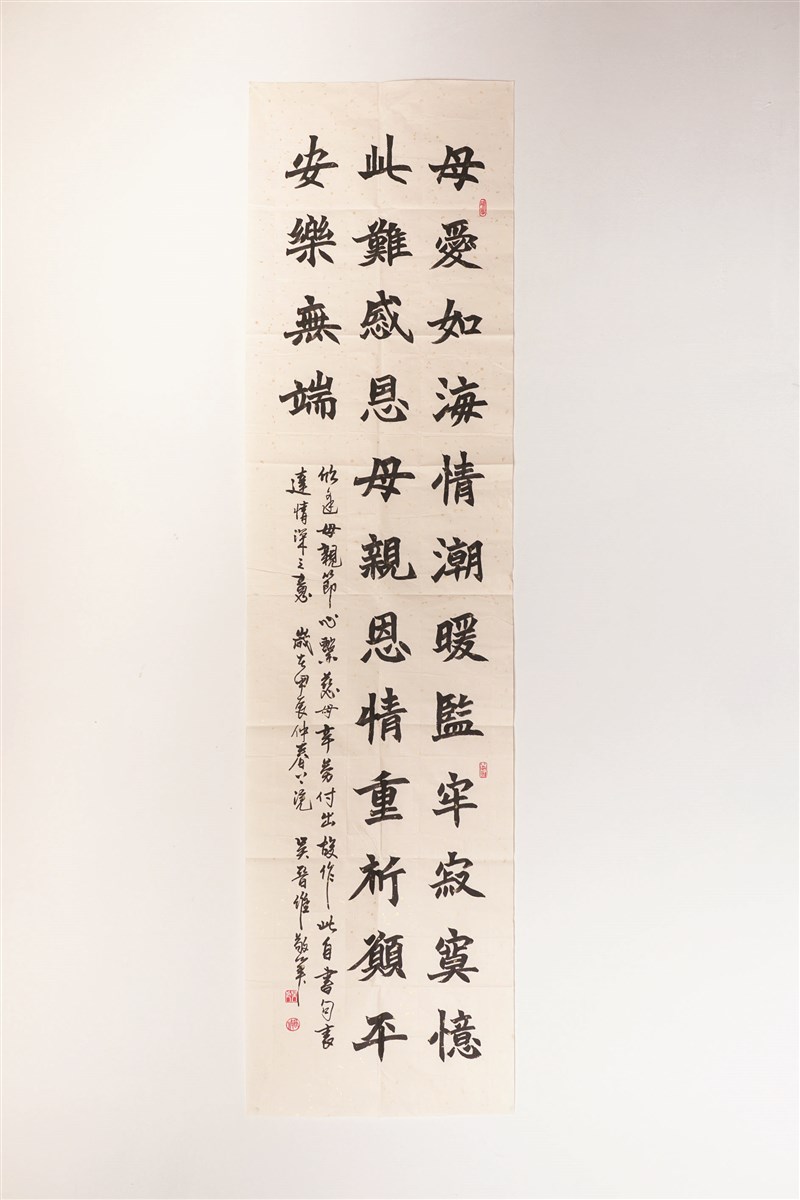 母愛如海情潮暖監牢寂寞憶
此難感恩母親恩情重祈願平
安樂無端
欣逢母親節心繫慈母辛勞付出故作此自書句表
達情深之意 歲在甲辰仲春上浣 吳晉維敬筆